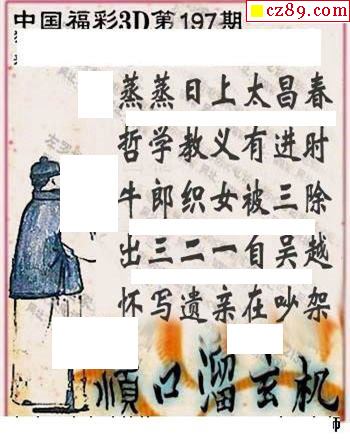 cz89.com
中国福彩3D第197期
蒸蒸日上太昌春
哲学教义有进时
牛郎织女被三除
出三二一自吴越
怀写遗亲在吵架
順口溜玄机